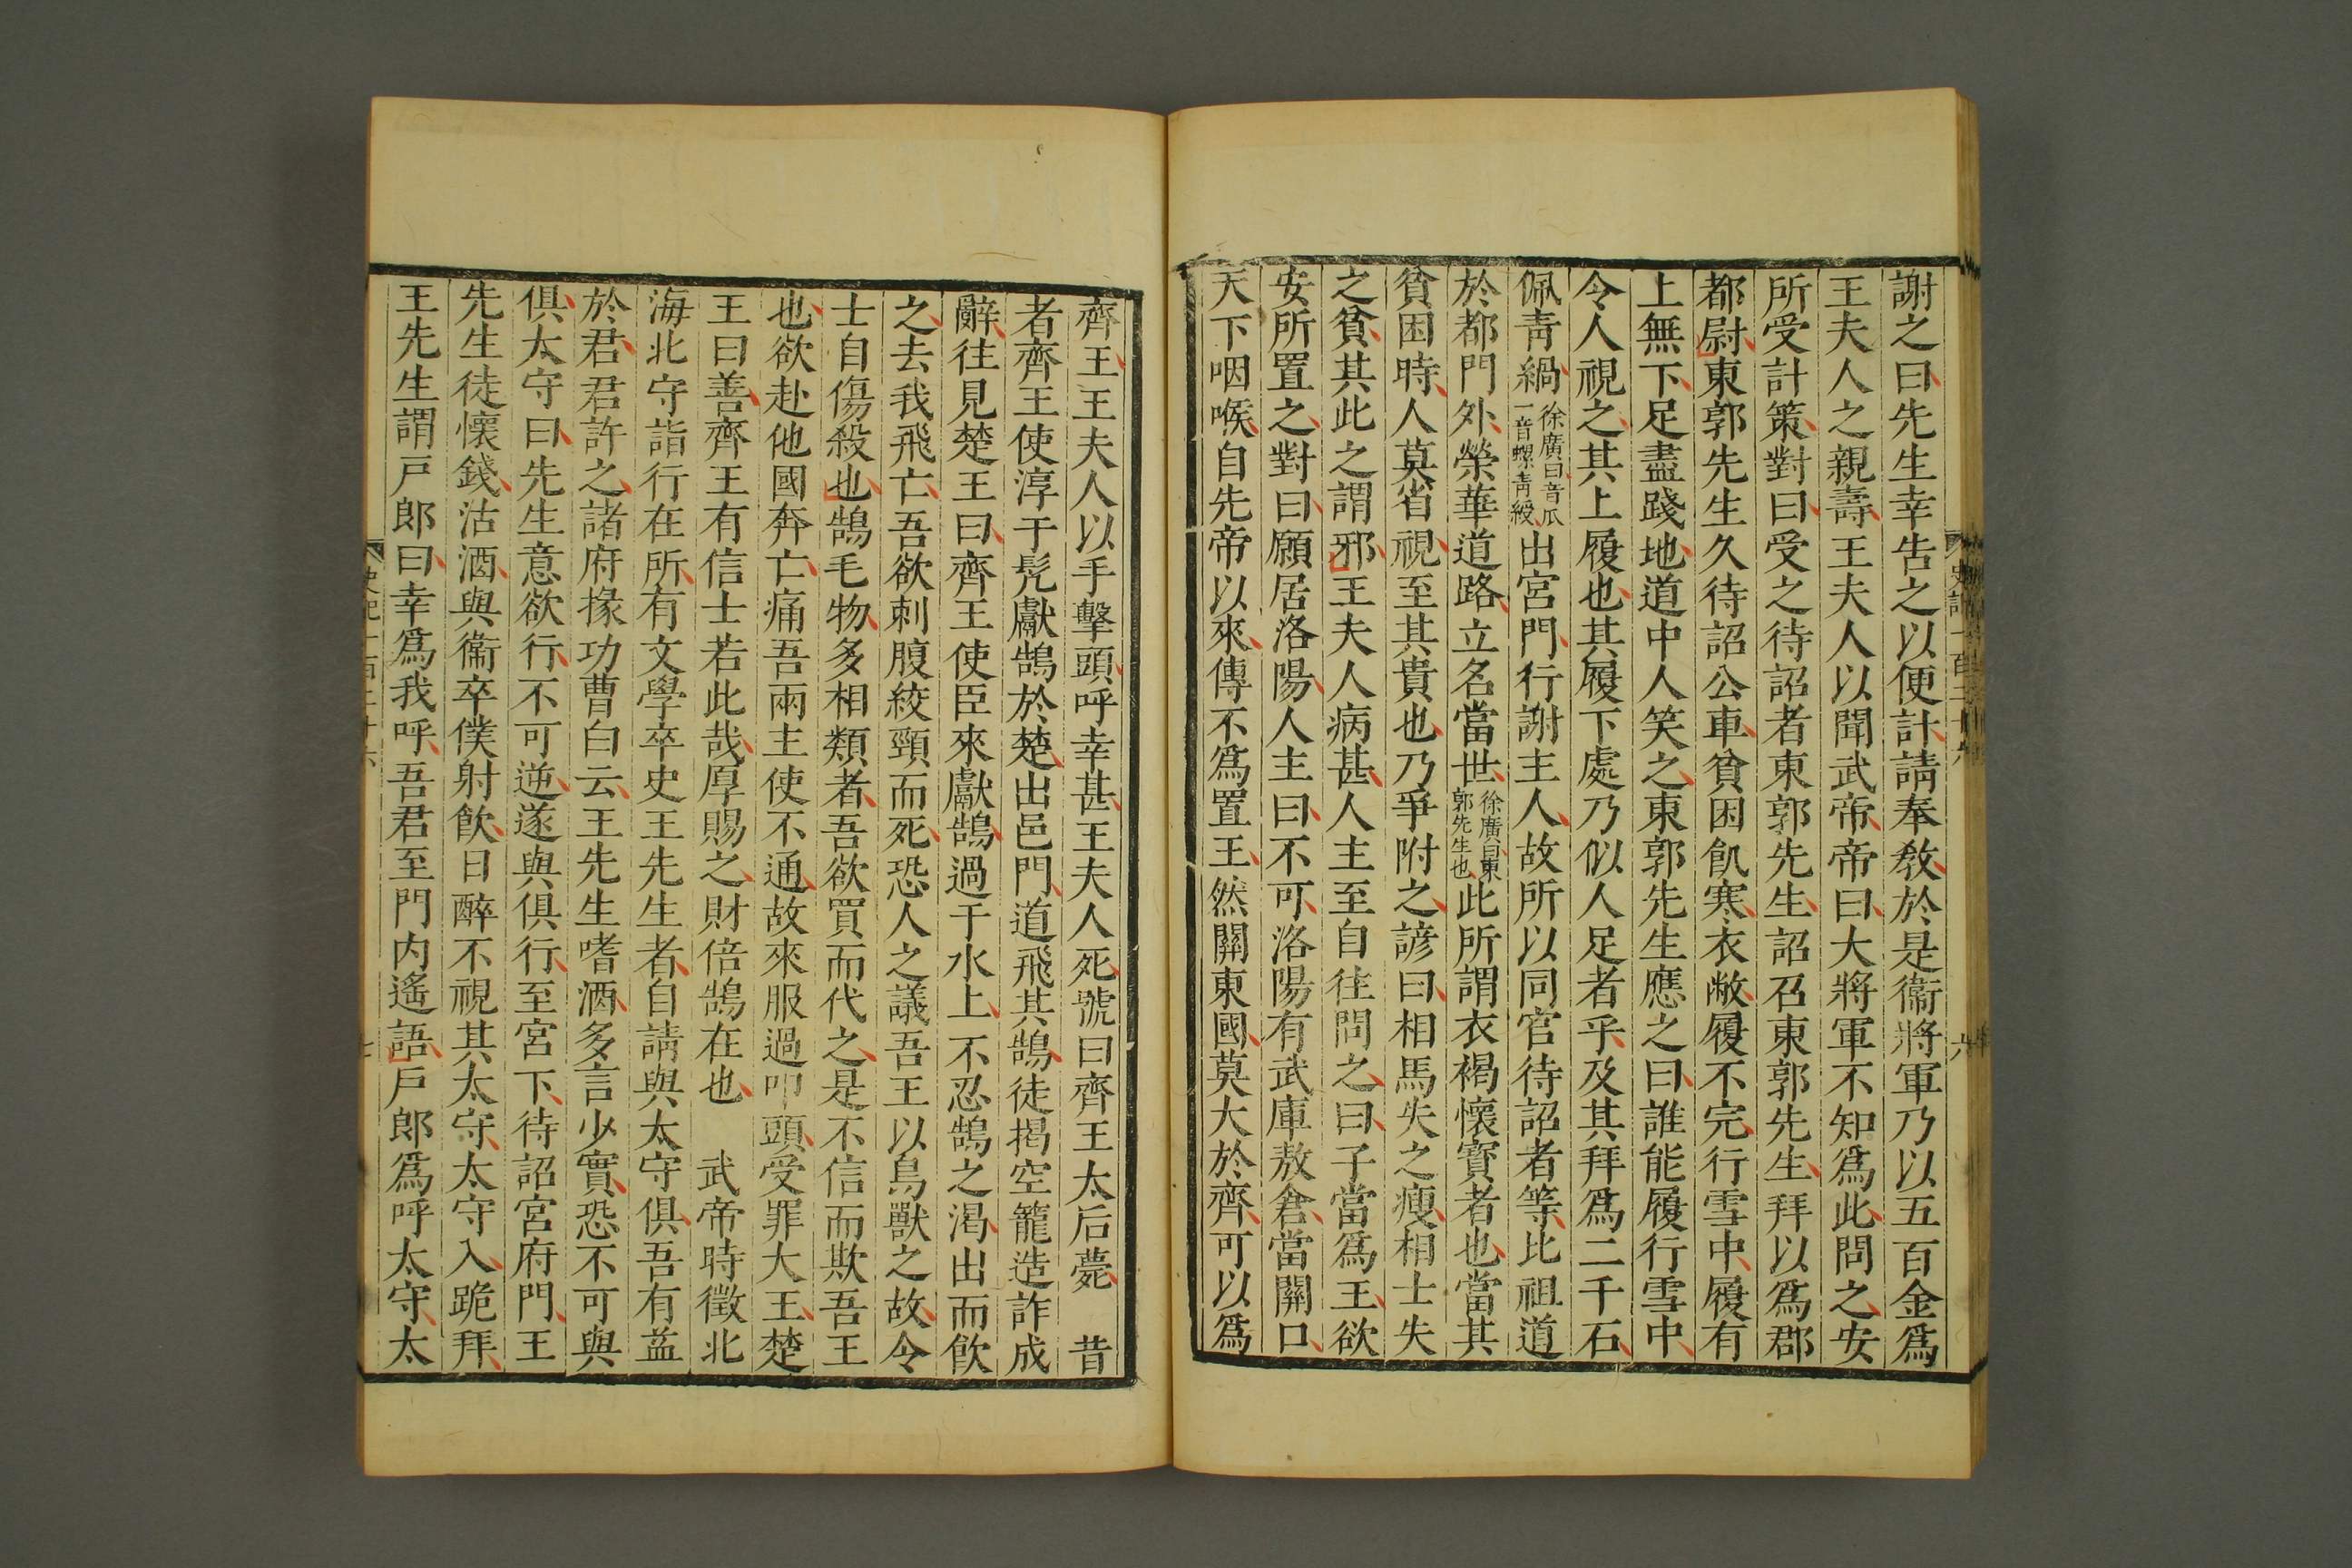 謝之曰先生幸告之以便計請奉教於是衞將軍乃以五百金爲
王夫人之親壽王夫人以聞武帝帝曰大將軍不知爲此問之安
所受計策對曰受之待詔者東郭先生詔召東郭先生拜以爲郡
都尉東郭先生久待詔公車貧困飢寒衣敝履不完行雪中履有
上無下足盡踐地道中人笑之東郭先生應之曰誰能履行雪中
令人視之其上履也其履下處乃似人足者乎及其拜爲二千石
佩青緺徐廣曰音瓜一音螺青綬出宮門行謝主人故所以同官待詔者等比祖道
於都門外榮華道路立名當世徐廣曰東郭先生也此所謂衣褐懷寶者也當其
貧困時人莫省視至其貴也乃爭附之諺曰相馬失之瘦相士失
之貧其此之謂邪王夫人病甚人主至自往問之曰子當爲王欲
安所置之對曰願居洛陽人主曰不可洛陽有武庫敖倉當關口
天下咽喉自先帝以來傳不爲置王然關東國莫大於齊可以爲
齊王王夫人以手擊頭呼幸甚王夫人死號曰齊王太后薨 昔
者齊王使淳于髡獻鵠於楚出邑門道飛其鵠徒揭空籠造詐成
辭往見楚王曰齊王使臣來獻鵠過于水上不忍鵠之渴出而飲
之去我飛亡吾欲刺腹絞頸而死恐人之議吾王以鳥獸之故令
士自傷殺也鵠毛物多相類者吾欲買而代之是不信而欺吾王
也欲赴他國奔亡痛吾兩主使不通故來服過叩頭受罪大王楚
王曰善齊王有信士若此哉厚賜之財倍鵠在也 武帝時徵北
海北守詣行在所有文學卒史王先生者自請與太守俱吾有益
於君君許之諸府掾功曹白云王先生嗜酒多言少實恐不可與
俱太守曰先生意欲行不可逆遂與俱行至宮下待詔宮府門王
先生徒懷錢沽酒與衞卒僕射飲日醉不視其太守太守入跪拜
王先生謂戸郎曰幸爲我呼吾君至門内遙語戸郎爲呼太守太